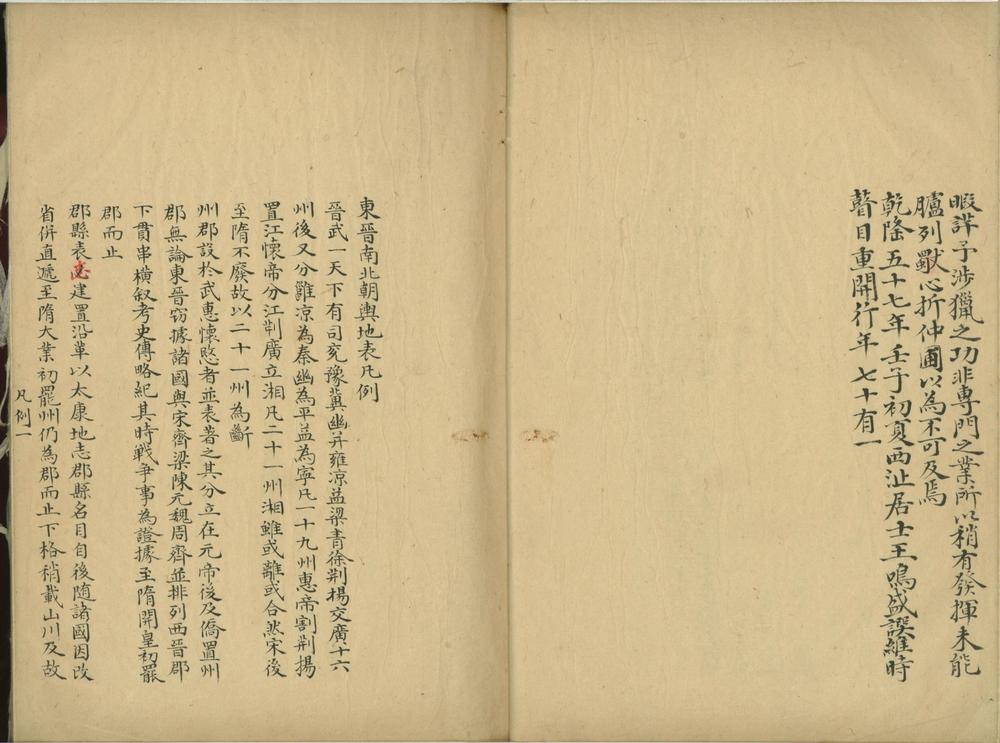 暇詳予涉獵之功非專門之業所以稍有發揮未能
臚列獸心折仲圃以為不可及焉
乾隆五十七年壬子初夏西沚居士王鳴盛譔維時
瞽目重開行年七十有一
東晉南北朝輿地表凡例
晉武一天下有司兗豫冀幽并雍凉益梁青徐荆揚交廣十六
州後又分雝凉為秦幽為平益為寧凡一十九州惠帝割荆揚
置江懷帝分江荆廣立湘凡二十一州湘雖或離或合然宋後
至隋不廢故以二十一州為斷
州郡設於武惠懷愍者並表著之其分立在元帝後及僑置州
郡無論東晉窃據諸國與宋齊梁陳元魏周齊並排列西晉郡
下貫串橫叙考史傳略紀其時戰争事為證據至隋開皇初罷
郡而止
郡縣表建置沿革以太康地志郡縣名目自後随諸國因改
省併直遞至隋大業初罷州仍為郡而止下格稍載山川及故
凡例一